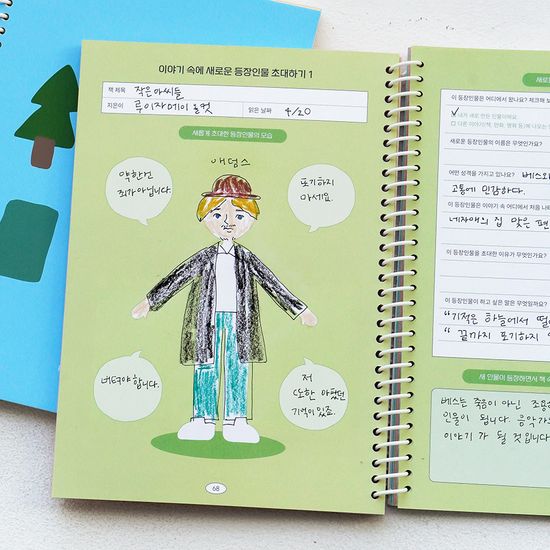 이야기 속에 새로운 등장인물 초대하기 1
책 제목 작은 아씨들
지은이 루이자 메이 올컷 읽은 날짜 4/20
새롭게 초대한 등장인물의 모습
애덩스
약한건
죄가 아닙니다.
포기하지
마세요.
버텨야 합니다.
저
또한 아팠던
기억이 있죠.
68
새로운
이 등장인물은 어디에서 왔나요? 체크해 보
내가 새로 만든 인물이에요.
새로운 등장인물의 이름은 무엇인가요?
어떤 성격을 가지고 있나요? 베스와
고통에 민감하다.
이 등장인물은 이야기 속 어디에서 처음 나
네자매의 집 맞은 편
이 등장인물을 초대한 이유가 무엇인가요?
이 등장인물이 하고 싶은 말은 무엇일까요?
"기적은 하늘에서 떨
"끝까지 포기하지
새 인물이 등장하면서 책 속
베스는 죽음이 아닌 조용
인물이 됩니다. 음악가
이야기가 될 것입니다